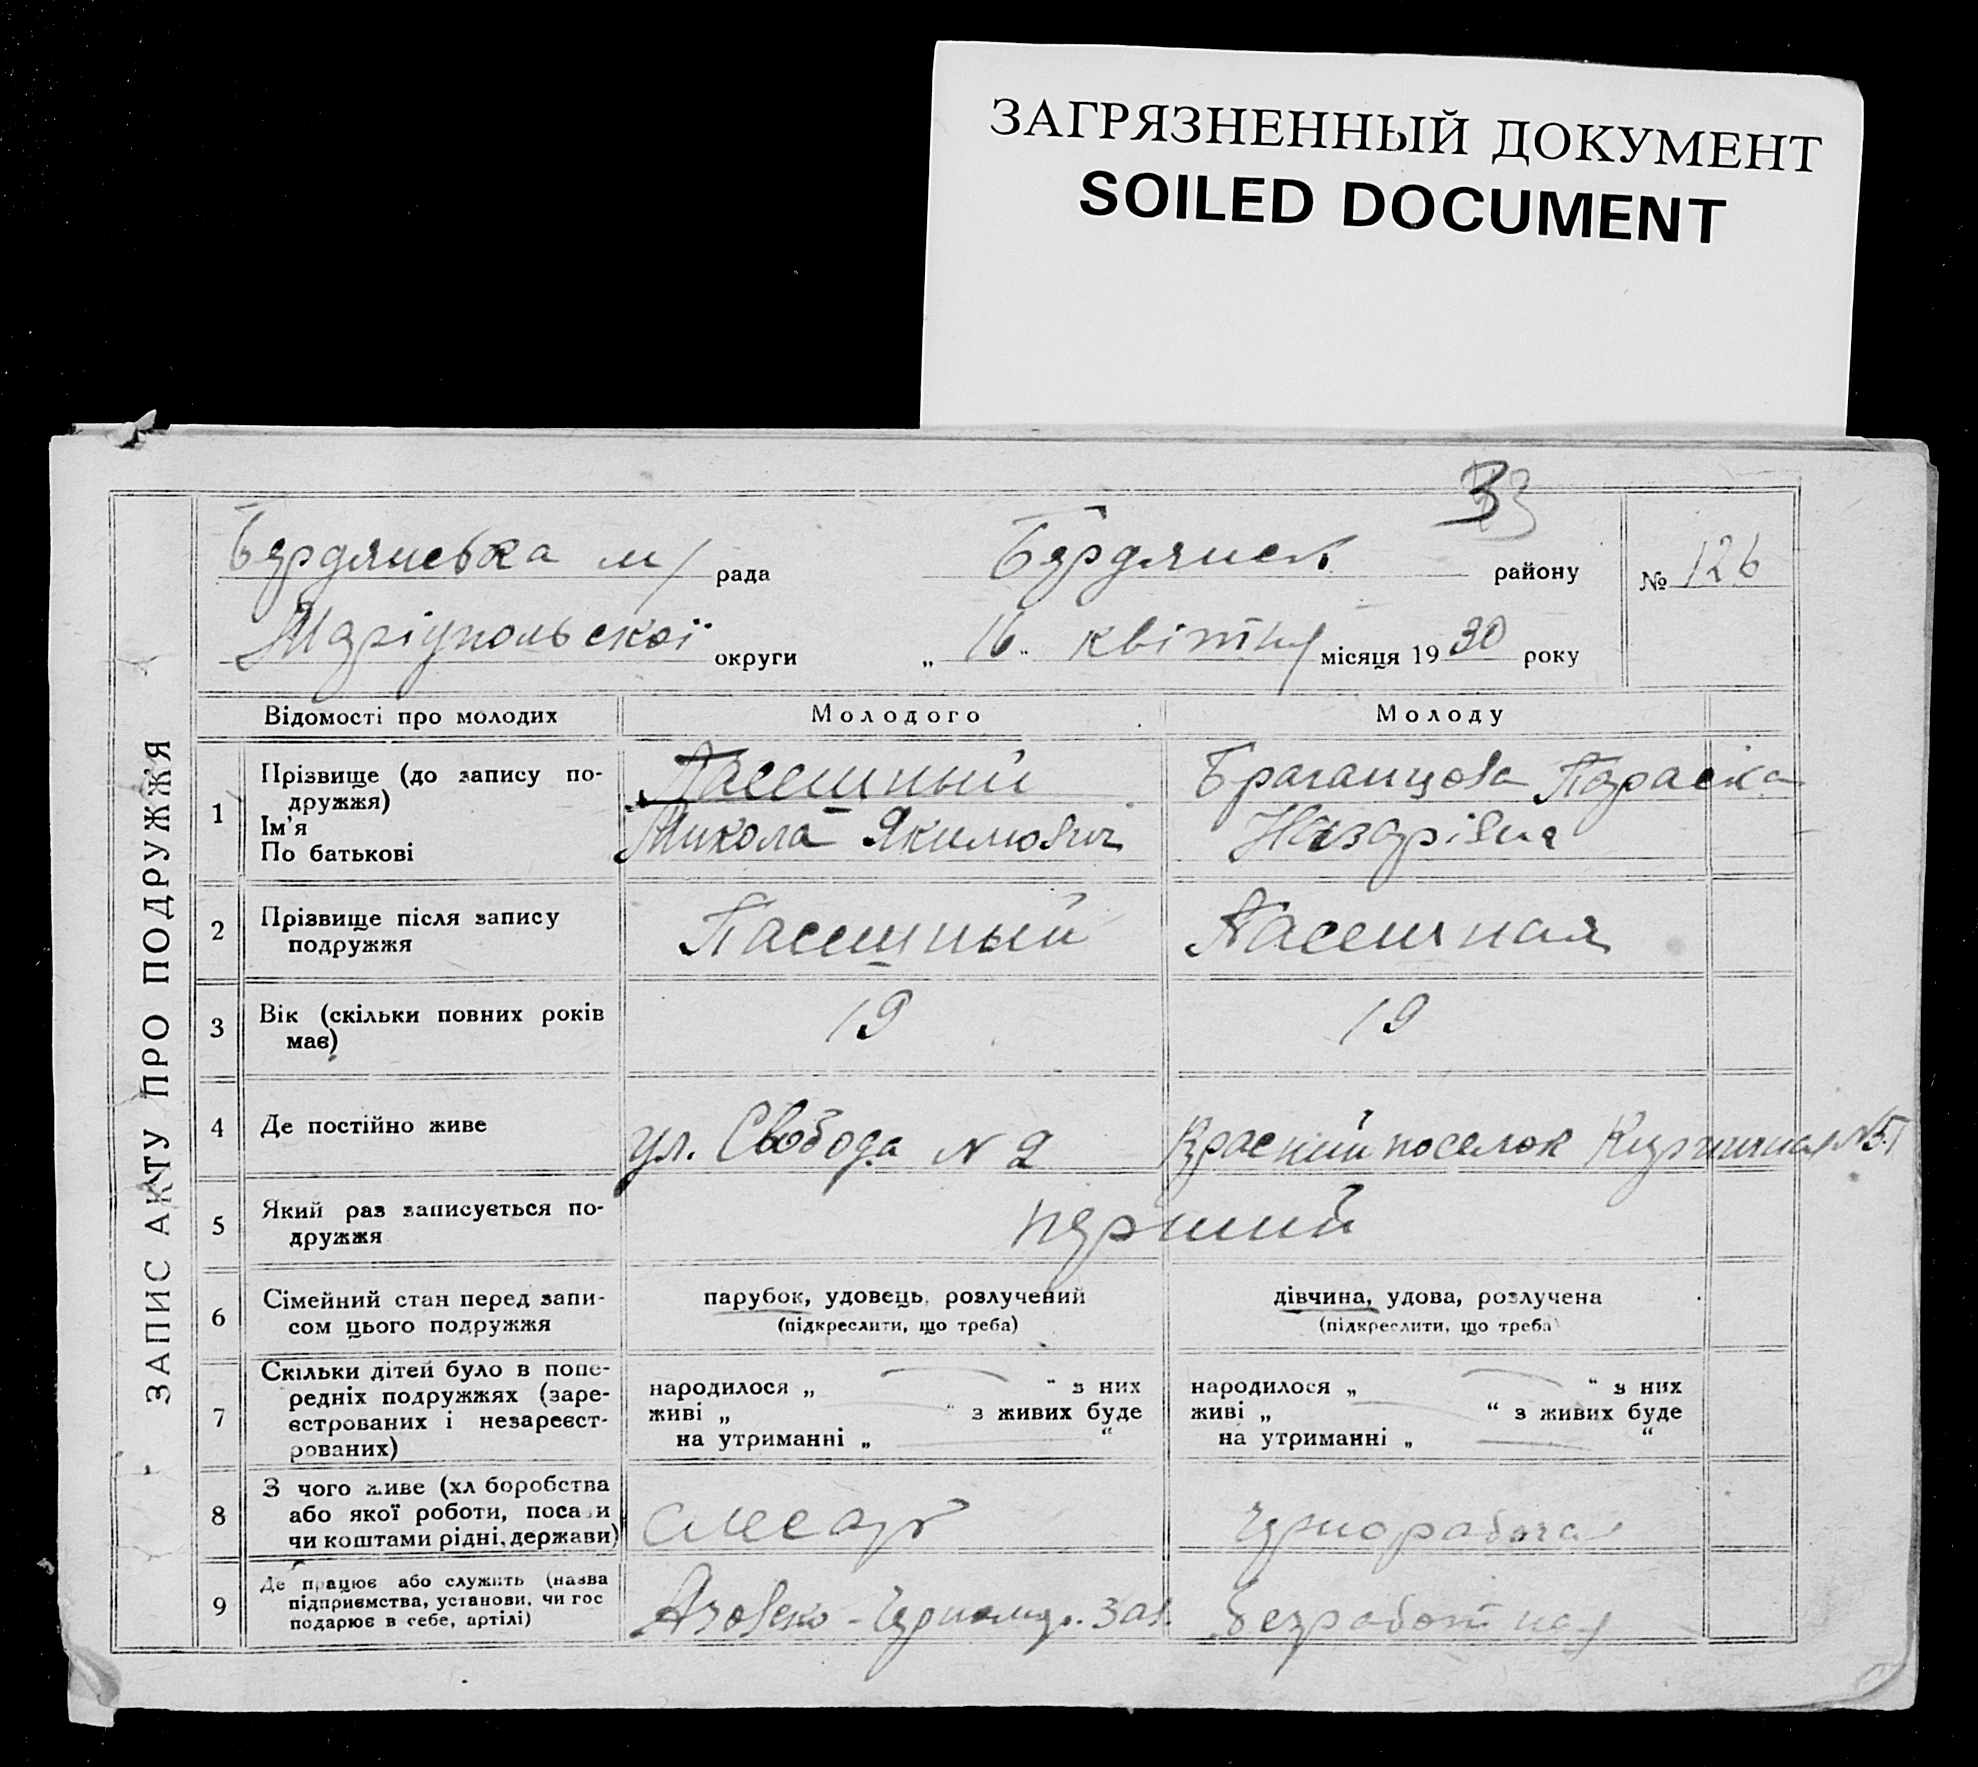 ЗАГРЯЗНЕННЫЙ ДОКУМЕНТ
SOILED DOCUMENT
33
Бердянська м/ рада Бердянськ району № 126
Маріупольської округи „ 16 " квітня місяця 1930 року
ЗАПИС АКТУ ПРО ПОДРУЖЖЯ
Відомості про молодих Молодого Молоду
1 Прізвище (до запису по-
дружжя)
Ім'я
По батькові
Пасешный
Микола Якимович
Браганцова Параска
Назарівна
2 Прізвище після запису
подружжя
Пасешный
Пасешная
3 Вік (скільки повних років
має)
19
19
4 Де постійно живе
ул. Свобода N 2
Красний поселок N 51
5 Який раз записується по-
дружжя
перший
6 Сімейний стан перед запи-
сом цього подружжя
парубок, удовець, розлучений
(підкреслити, що треба)
дівчина, удова, розлучена
(підкреслити, що треба)
7 Скільки дітей було в попе-
редніх подружжях (заре-
єстрованих і незареєст-
рованих)
народилося „ " з них
живі „ " з живих буде
на утриманні „ "
народилося „ " з них
живі „ " з живих буде
на утриманні „ "
8 З чого живе (хліборобства
або якої роботи, посади
чи коштами рідні, держави)
слесарь
чернорабочая
9 Де працює або служить (назва
підприємства, установи, чи гос
подарює в себе, артілі)
Азовско-Черномор. зав.
безработная